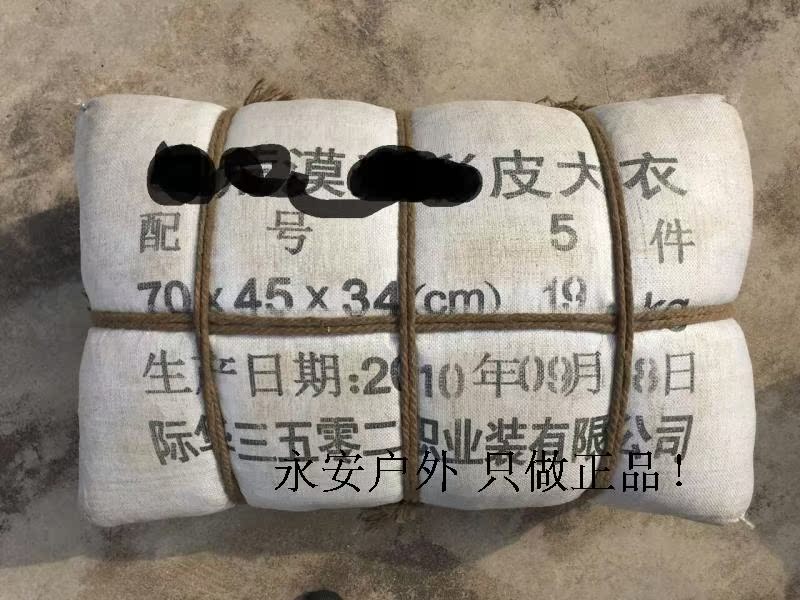 漠 皮大衣
配 号 5 件
70×45×34(cm) 19 kg
生产日期:2010年09月 8日
际华三五零二职业装有限公司
永安户外 只做正品!